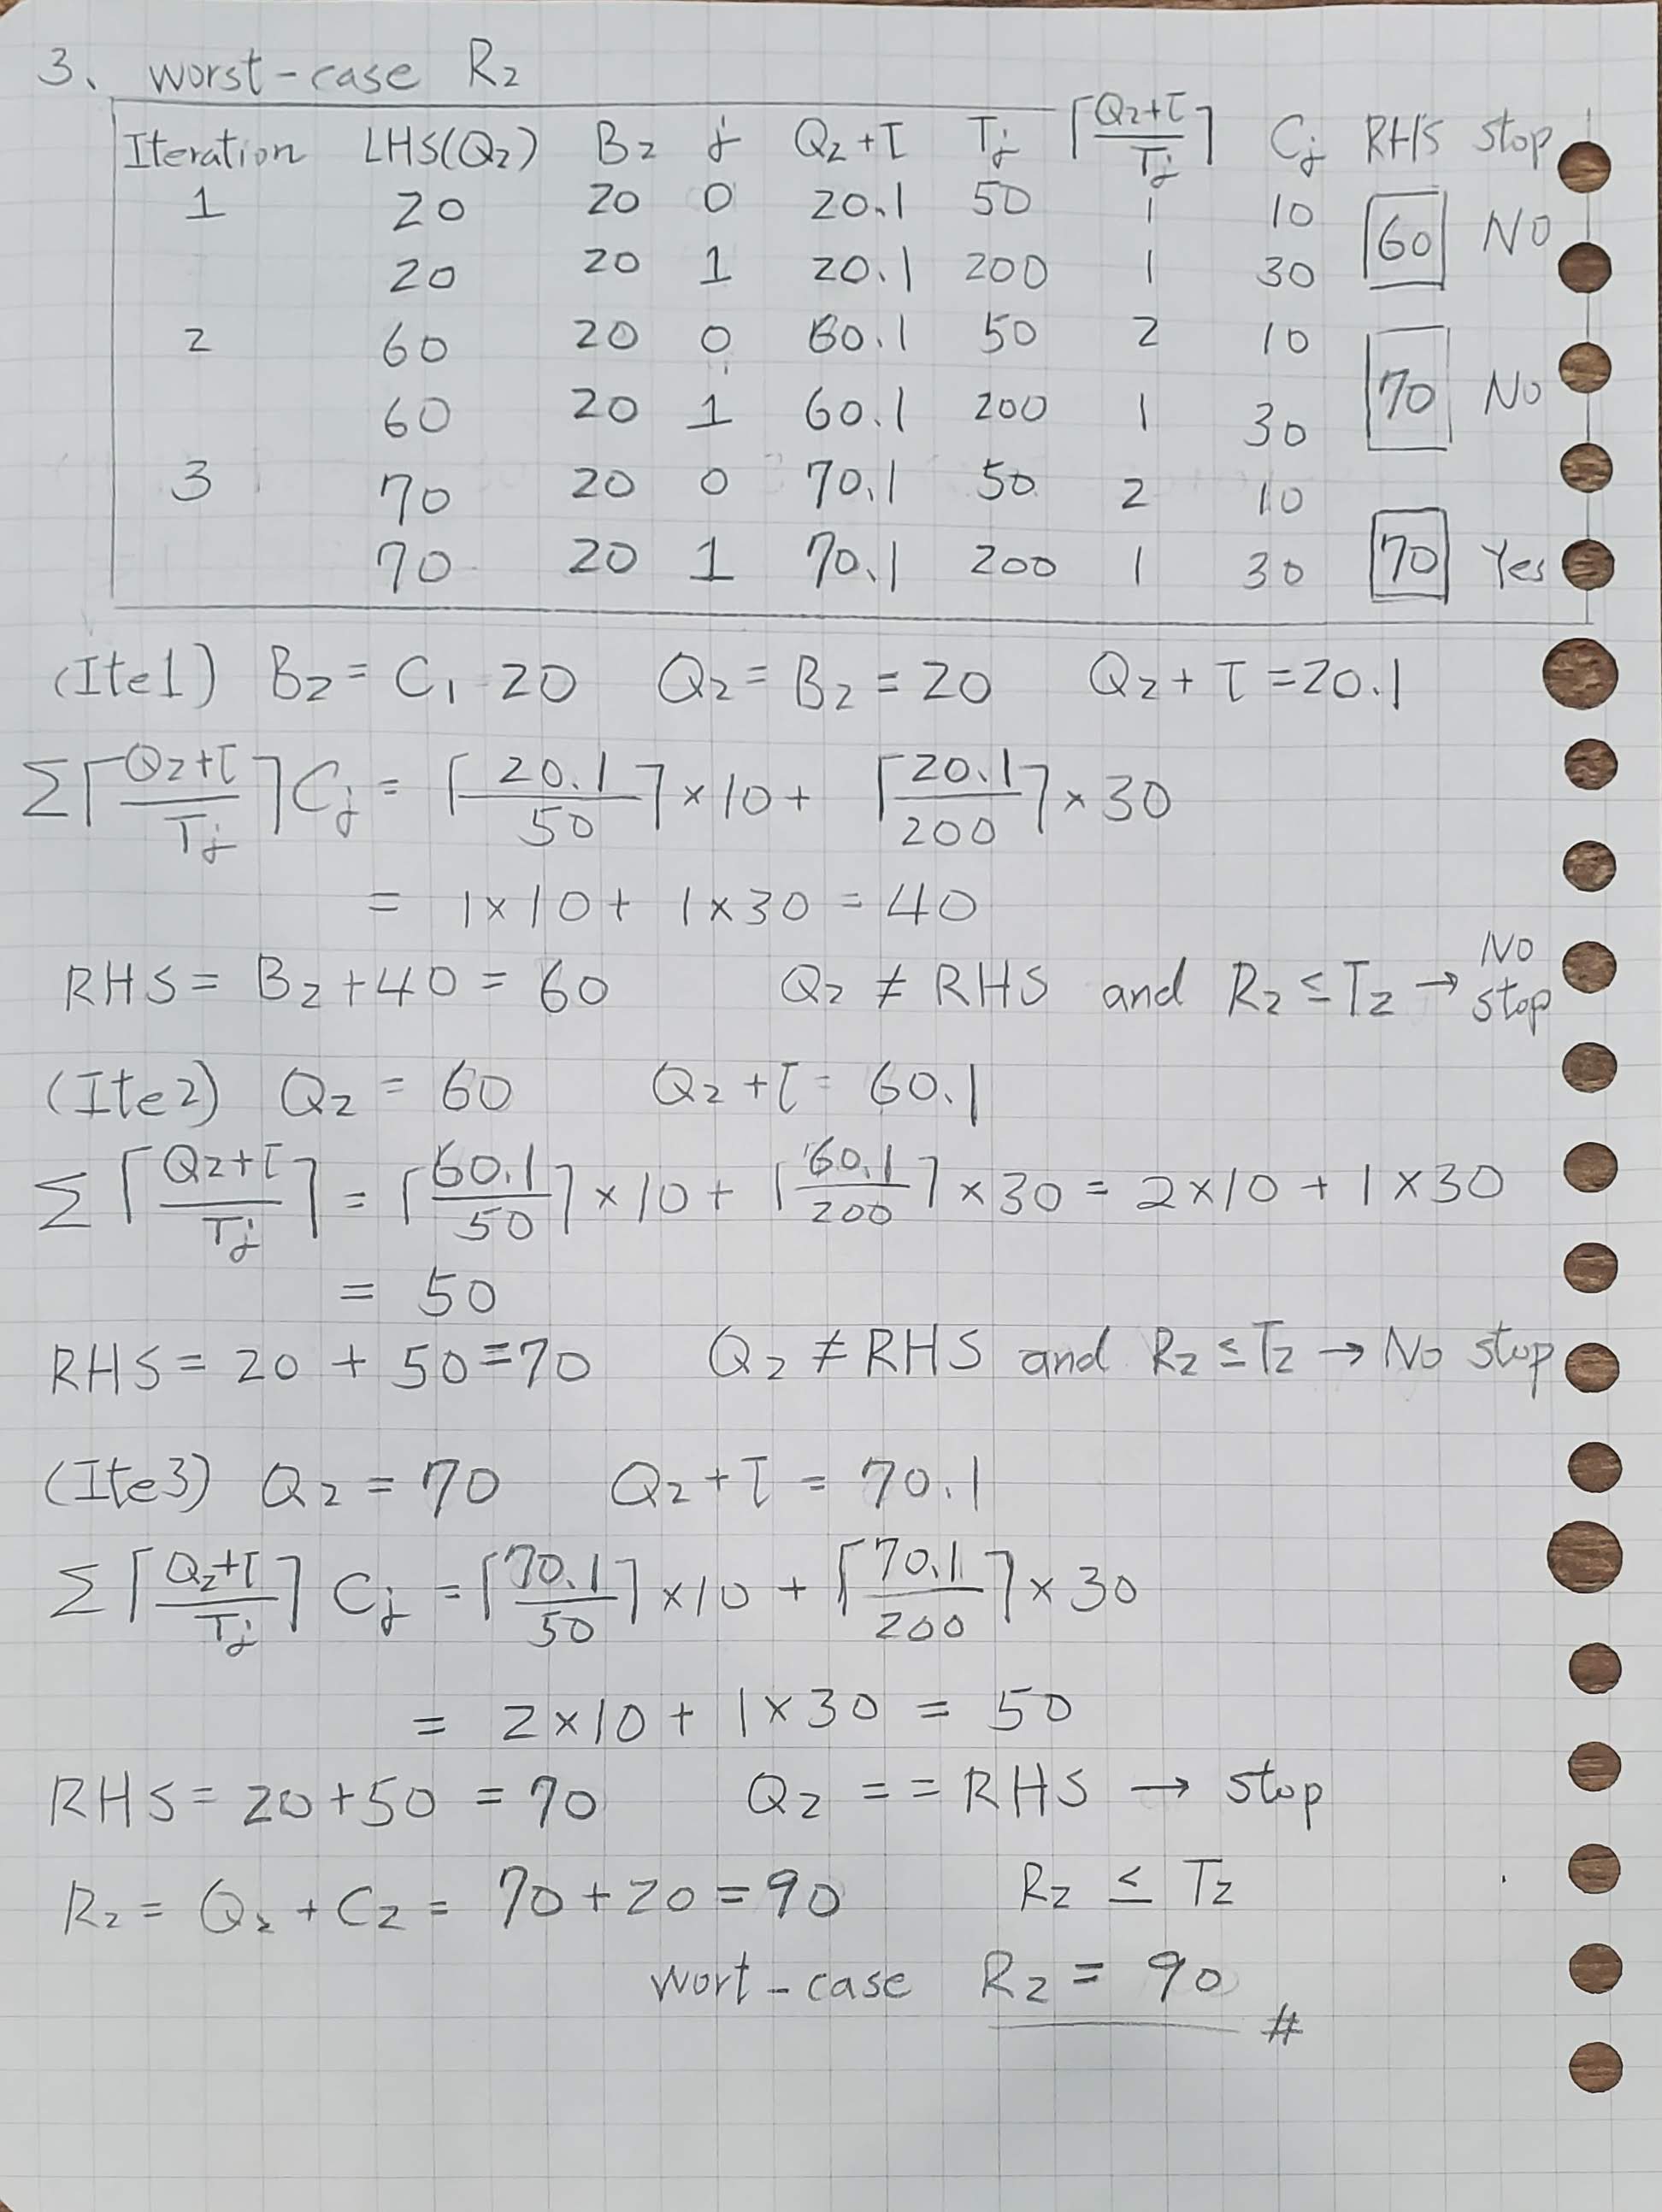 3. worst-case R₂
Iteration LHS(Q₂) B₂ j Q₂+τ Tj ⌈(Q₂+τ)/Tj⌉ Cj RHS stop
1 20 20 0 20.1 50 1 10 60 NO
20 20 1 20.1 200 1 30
2 60 20 0 60.1 50 2 10 70 No
60 20 1 60.1 200 1 30
3 70 20 0 70.1 50 2 10
70 20 1 70.1 200 1 30 70 Yes
(Ite1) B₂ = C₁ 20 Q₂ = B₂ = 20 Q₂ + τ = 20.1
Σ⌈(Q₂+τ)/Tj⌉Cj = ⌈20.1/50⌉×10 + ⌈20.1/200⌉×30
= 1×10 + 1×30 = 40
RHS = B₂+40 = 60 Q₂ ≠ RHS and R₂ ≤ T₂ → No stop
(Ite2) Q₂ = 60 Q₂ + τ = 60.1
Σ⌈(Q₂+τ)/Tj⌉ = ⌈60.1/50⌉×10 + ⌈60.1/200⌉×30 = 2×10 + 1×30
= 50
RHS = 20 + 50 = 70 Q₂ ≠ RHS and R₂ ≤ T₂ → No stop
(Ite3) Q₂ = 70 Q₂ + τ = 70.1
Σ⌈(Q₂+τ)/Tj⌉ Cj = ⌈70.1/50⌉×10 + ⌈70.1/200⌉×30
= 2×10 + 1×30 = 50
RHS = 20+50 = 70 Q₂ == RHS → stop
R₂ = Q₂ + C₂ = 70+20 = 90 R₂ ≤ T₂
wort-case R₂ = 90 #